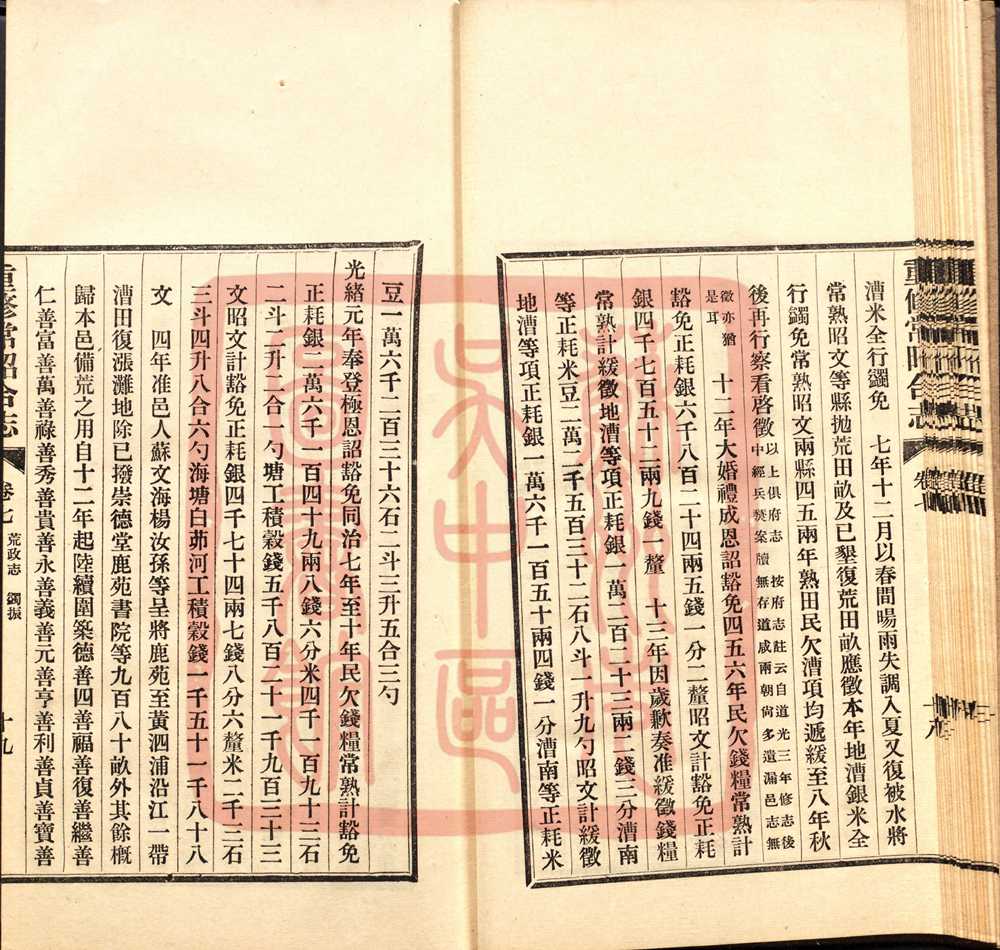 漕米全行蠲免　七年十二月以春間暘雨失調入夏又復被水將
常熟昭文等縣拋荒田畝及已墾復荒田畝應徵本年地漕銀米全
行蠲免常熟昭文兩縣四五兩年熟田民欠漕項均遞緩至八年秋
後再行察看啓徵以上俱府志　按府志註云自道光三年修志後中經兵燹案牘無存道咸兩朝尙多遺漏邑志無
徵亦猶是耳　十二年大婚禮成恩詔豁免四五六年民欠錢糧常熟計
豁免正耗銀六千八百二十四兩五錢一分二釐昭文計豁免正耗
銀四千七百五十二兩九錢一釐　十三年因歲歉奏准緩徵錢糧
常熟計緩徵地漕等項正耗銀一萬二百二十三兩二錢三分漕南
等正耗米豆二萬二千五百三十二石八斗一升九勺昭文計緩徵
地漕等項正耗銀一萬六千一百五十兩四錢一分漕南等正耗米
重修常昭合志
豆一萬六千二百三十六石二斗三升五合三勺
光緒元年奉登極恩詔豁免同治七年至十年民欠錢糧常熟計豁免
正耗銀二萬六千一百四十九兩八錢六分米四千一百九十三石
二斗二升二合一勺塘工積穀錢五千八百二十一千九百三十三
文昭文計豁免正耗銀四千七十四兩七錢八分六釐米二千三石
三斗四升八合六勺海塘白茆河工積穀錢一千五十一千八十八
文　四年准邑人蘇文海楊汝孫等呈將鹿苑至黃泗浦沿江一帶
漕田復漲灘地除已撥崇德堂鹿苑書院等九百八十畝外其餘槪
歸本邑備荒之用自十二年起陸續圍築德善四善福善復善繼善
仁善富善萬善祿善秀善貴善永善義善元善亨善利善貞善寶善
重修常昭合志　卷七　荒政志　蠲振　十九